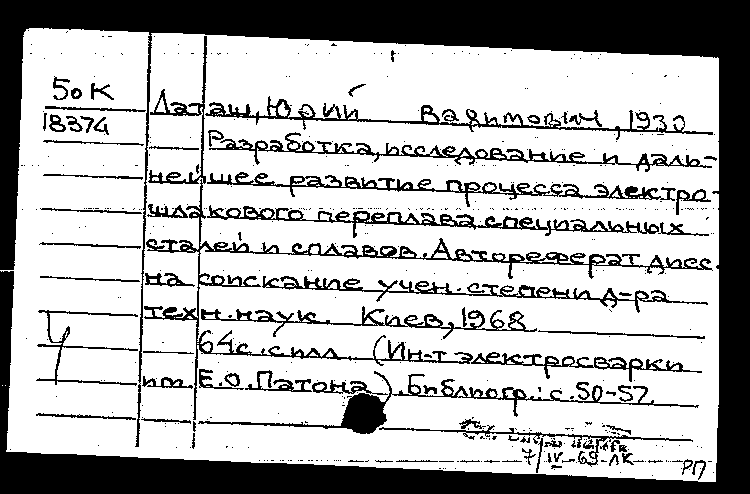 50К
18374
Латаш, Юрий Вадимович, 1930
Разработка, исследование и даль-
нейшее развитие процесса электро-
шлакового переплава специальных
сталей и сплавов. Автореферат дисс.
на соискание учен. степени д-ра
техн. наук. Киев, 1968
64с. с илл. (Ин-т электросварки
им. Е.О. Патона). Библиогр.: с. 50-57.
7/IV-69-ЛК
РП